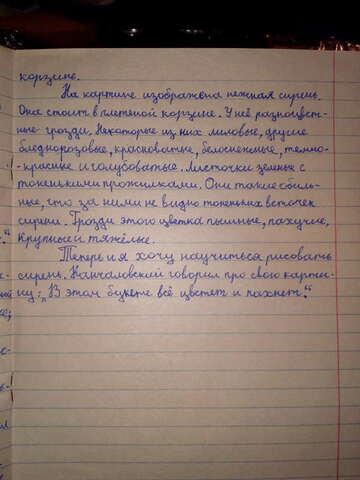 корзине.
На картине изображена нежная сирень.
Она стоит в плетеной корзине. У неё разноцвет-
ные грозди. Некоторые из них лиловые, другие
бледнорозовые, красноватые, белоснежные, темно-
-красные и голубоватые. Листочки зеленые с
тоненькими прожилками. Они такие обиль-
ные, что за ними не видно тоненьких веточек
сирени. Грозди этого цветка пышные, пахучие,
крупные и тяжёлые.
Теперь и я хочу научиться рисовать
сирень. Канчаловский говорил про свою карти-
ну: „В этом букете всё цветет и пахнет."